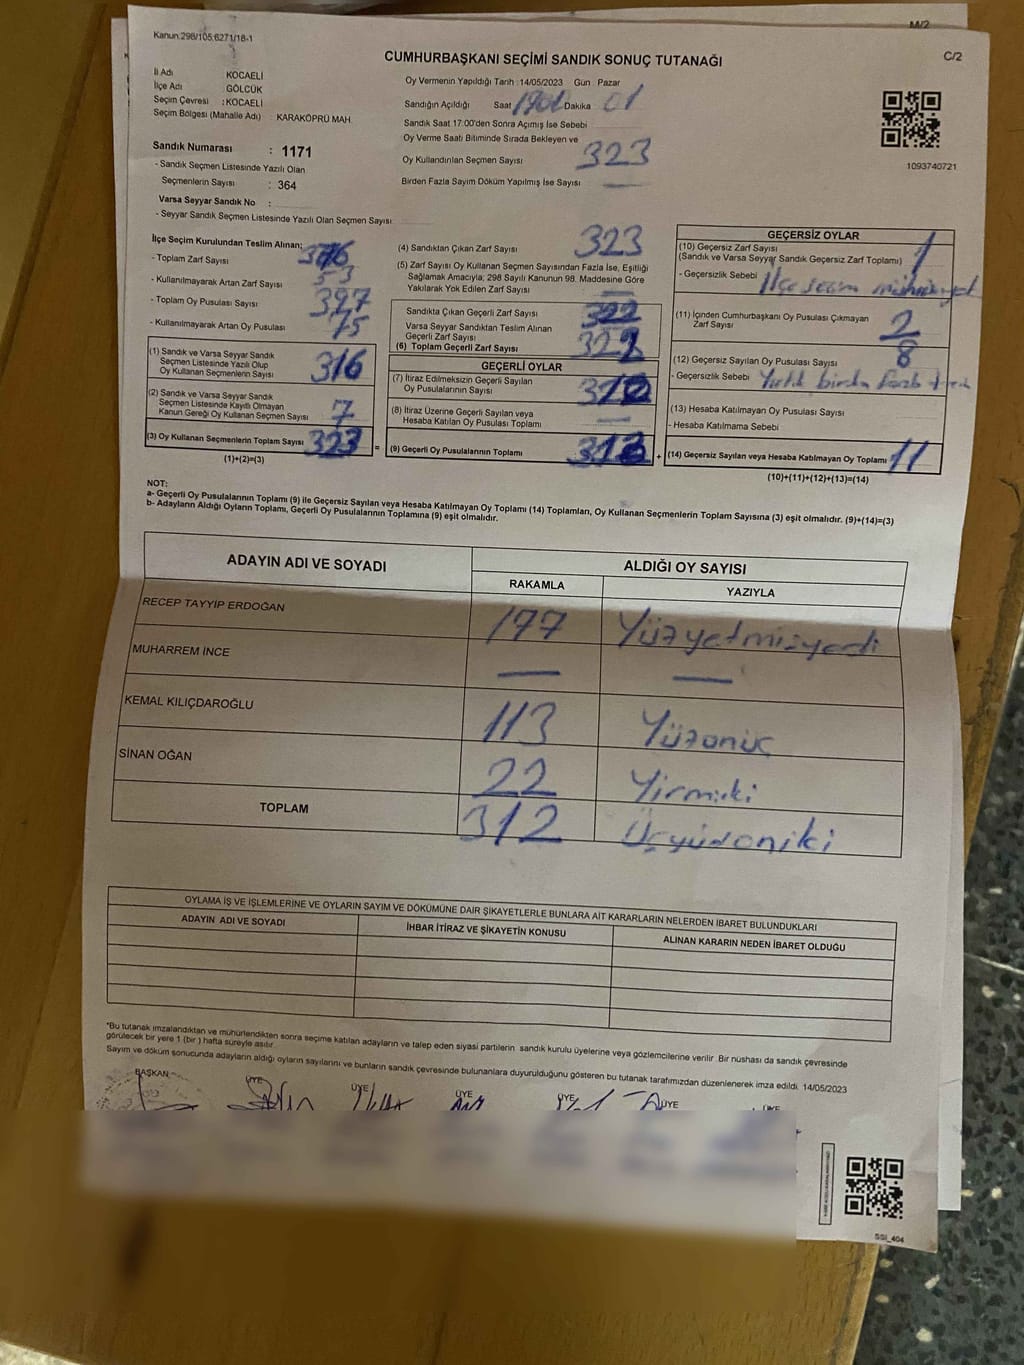 M/2
Kanun:298/105;6271/18-1
C/2
CUMHURBAŞKANI SEÇİMİ SANDIK SONUÇ TUTANAĞI
İl Adı KOCAELİ
İlçe Adı GÖLCÜK
Seçim Çevresi : KOCAELİ
Seçim Bölgesi (Mahalle Adı) : KARAKÖPRÜ MAH.
Sandık Numarası : 1171
- Sandık Seçmen Listesinde Yazılı Olan
Seçmenlerin Sayısı : 364
Varsa Seyyar Sandık No :
- Seyyar Sandık Seçmen Listesinde Yazılı Olan Seçmen Sayısı
Oy Vermenin Yapıldığı Tarih :14/05/2023 Gün Pazar
Sandığın Açıldığı Saat Dakika 01
Sandık Saat 17:00'den Sonra Açımış İse Sebebi
Oy Verme Saati Bitiminde Sırada Bekleyen ve
Oy Kullandırılan Seçmen Sayısı 323
Birden Fazla Sayım Döküm Yapılmış İse Sayısı —
1093740721
İlçe Seçim Kurulundan Teslim Alınan;
- Toplam Zarf Sayısı
- Kullanılmayarak Artan Zarf Sayısı 53
- Toplam Oy Pusulası Sayısı
- Kullanılmayarak Artan Oy Pusulası 75
(1) Sandık ve Varsa Seyyar Sandık
Seçmen Listesinde Yazılı Olup
Oy Kullanan Seçmenlerin Sayısı 316
(2) Sandık ve Varsa Seyyar Sandık
Seçmen Listesinde Kayıtlı Olmayan
Kanun Gereği Oy Kullanan Seçmen Sayısı 7
(3) Oy Kullanan Seçmenlerin Toplam Sayısı 323
(1)+(2)=(3)
=
(4) Sandıktan Çıkan Zarf Sayısı 323
(5) Zarf Sayısı Oy Kullanan Seçmen Sayısından Fazla İse, Eşitliği
Sağlamak Amacıyla; 298 Sayılı Kanunun 98. Maddesine Göre
Yakılarak Yok Edilen Zarf Sayısı —
Sandıkta Çıkan Geçerli Zarf Sayısı 322
Varsa Seyyar Sandıktan Teslim Alınan
Geçerli Zarf Sayısı
(6) Toplam Geçerli Zarf Sayısı 322
GEÇERLİ OYLAR
(7) İtiraz Edilmeksizin Geçerli Sayılan
Oy Pusulalarının Sayısı
(8) İtiraz Üzerine Geçerli Sayılan veya
Hesaba Katılan Oy Pusulası Toplamı —
(9) Geçerli Oy Pusulalarının Toplamı
+
GEÇERSİZ OYLAR
(10) Geçersiz Zarf Sayısı
(Sandık ve Varsa Seyyar Sandık Geçersiz Zarf Toplamı) 1
- Geçersizlik Sebebi İlçe seçim
(11) İçinden Cumhurbaşkanı Oy Pusulası Çıkmayan
Zarf Sayısı 2
(12) Geçersiz Sayılan Oy Pusulası Sayısı 8
- Geçersizlik Sebebi Yırtık birden fazla
(13) Hesaba Katılmayan Oy Pusulası Sayısı
- Hesaba Katılmama Sebebi
(14) Geçersiz Sayılan veya Hesaba Katılmayan Oy Toplamı 11
(10)+(11)+(12)+(13)=(14)
NOT:
a- Geçerli Oy Pusulalarının Toplamı (9) ile Geçersiz Sayılan veya Hesaba Katılmayan Oy Toplamı (14) Toplamları, Oy Kullanan Seçmenlerin Toplam Sayısına (3) eşit olmalıdır. (9)+(14)=(3)
b- Adayların Aldığı Oyların Toplamı, Geçerli Oy Pusulalarının Toplamına (9) eşit olmalıdır.
ADAYIN ADI VE SOYADI
ALDIĞI OY SAYISI
RAKAMLA YAZIYLA
RECEP TAYYİP ERDOĞAN 177 Yüzyetmişyedi
MUHARREM İNCE — —
KEMAL KILIÇDAROĞLU 113 Yüzonüç
SİNAN OĞAN 22 Yirmiiki
TOPLAM 312 Üçyüzoniki
OYLAMA İŞ VE İŞLEMLERİNE VE OYLARIN SAYIM VE DÖKÜMÜNE DAİR ŞİKAYETLERLE BUNLARA AİT KARARLARIN NELERDEN İBARET BULUNDUKLARI
ADAYIN ADI VE SOYADI
İHBAR İTİRAZ VE ŞİKAYETİN KONUSU
ALINAN KARARIN NEDEN İBARET OLDUĞU
*Bu tutanak imzalandıktan ve mühürlendikten sonra seçime katılan adayların ve talep eden siyasi partilerin sandık kurulu üyelerine veya gözlemcilerine verilir. Bir nüshası da sandık çevresinde
görülecek bir yere 1 (bir ) hafta süreyle asılır.
Sayım ve döküm sonucunda adayların aldığı oyların sayılarını ve bunların sandık çevresinde bulunanlara duyurulduğunu gösteren bu tutanak tarafımızdan düzenlenerek imza edildi. 14/05/2023
BAŞKAN ÜYE ÜYE ÜYE ÜYE ÜYE ÜYE
SSI_404